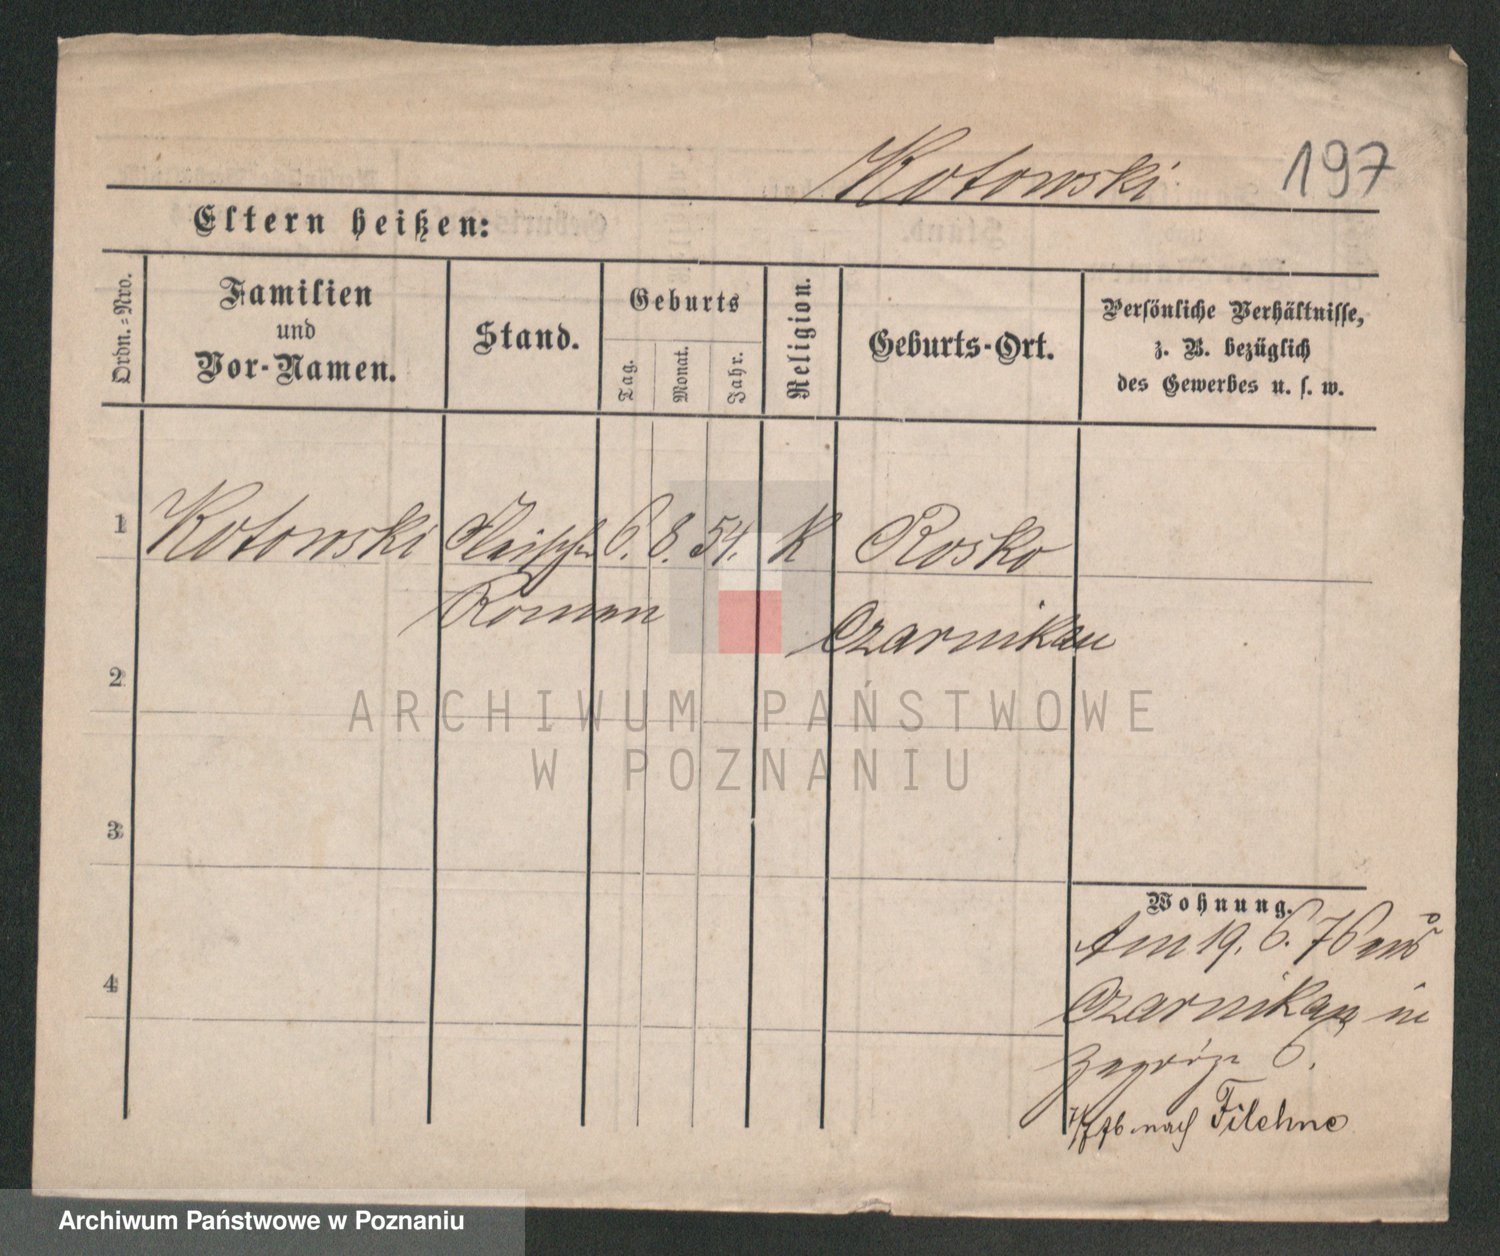 Kotowski 197
Eltern heißen:
Ordn.=Nro.
Familien
und
Vor-Namen.
Stand.
Geburts
Tag.
Monat.
Jahr.
Religion.
Geburts-Ort.
Persönliche Verhältnisse,
z. B. bezüglich
des Gewerbes u. s. w.
1 Kotowski Fleischer 6. 8. 54. K Rosko
Roman Czarnikau
2
ARCHIWUM PAŃSTWOWE
W POZNANIU
3
Wohnung.
Am 19. 6. 76 aus
4 Czarnikau in
6.
nach Filehne
Archiwum Państwowe w Poznaniu